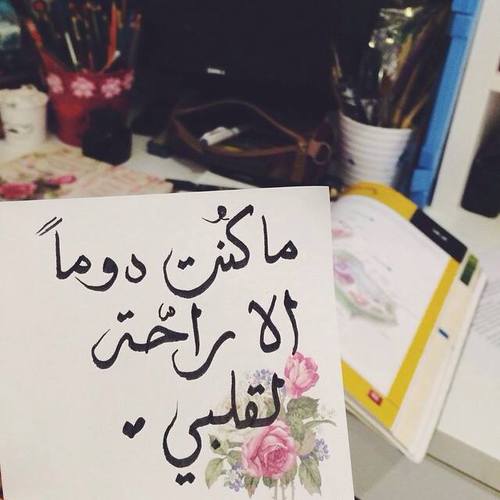 ما كُنت دوماً
الا راحّة
لقلبي